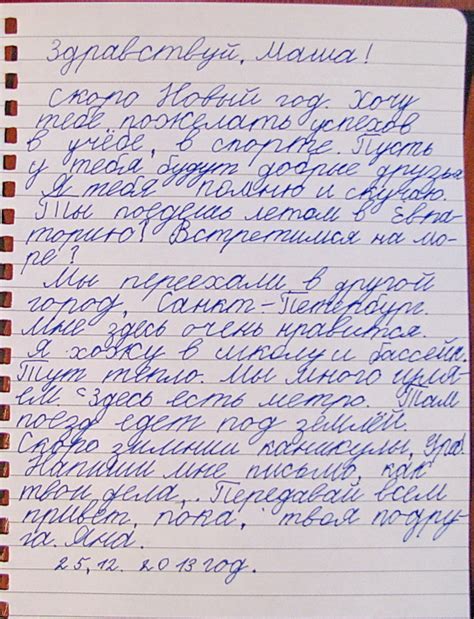 Здравствуй, Маша!
скоро Новый год. Хочу
тебе пожелать успехов
в учёбе, в спорте. Пусть
у тебя будут добрые друзья.
Я тебя помню и скучаю.
Ты поедешь летом в Евпа-
торию? Встретимся на мо-
ре?
Мы переехали в другой
город, Санкт-Петербург.
Мне здесь очень нравится.
Я хожу в школу и бассейн.
Тут тепло. Мы много гуля-
ем. Здесь есть метро. Там
поезд едет под землёй.
Скоро зимнии каникулы, Ура!
Напиши мне письмо как
твои дела,. Передавай всем
привет, пока, твоя подру-
га. Яна.
25, 12. 2013 год.